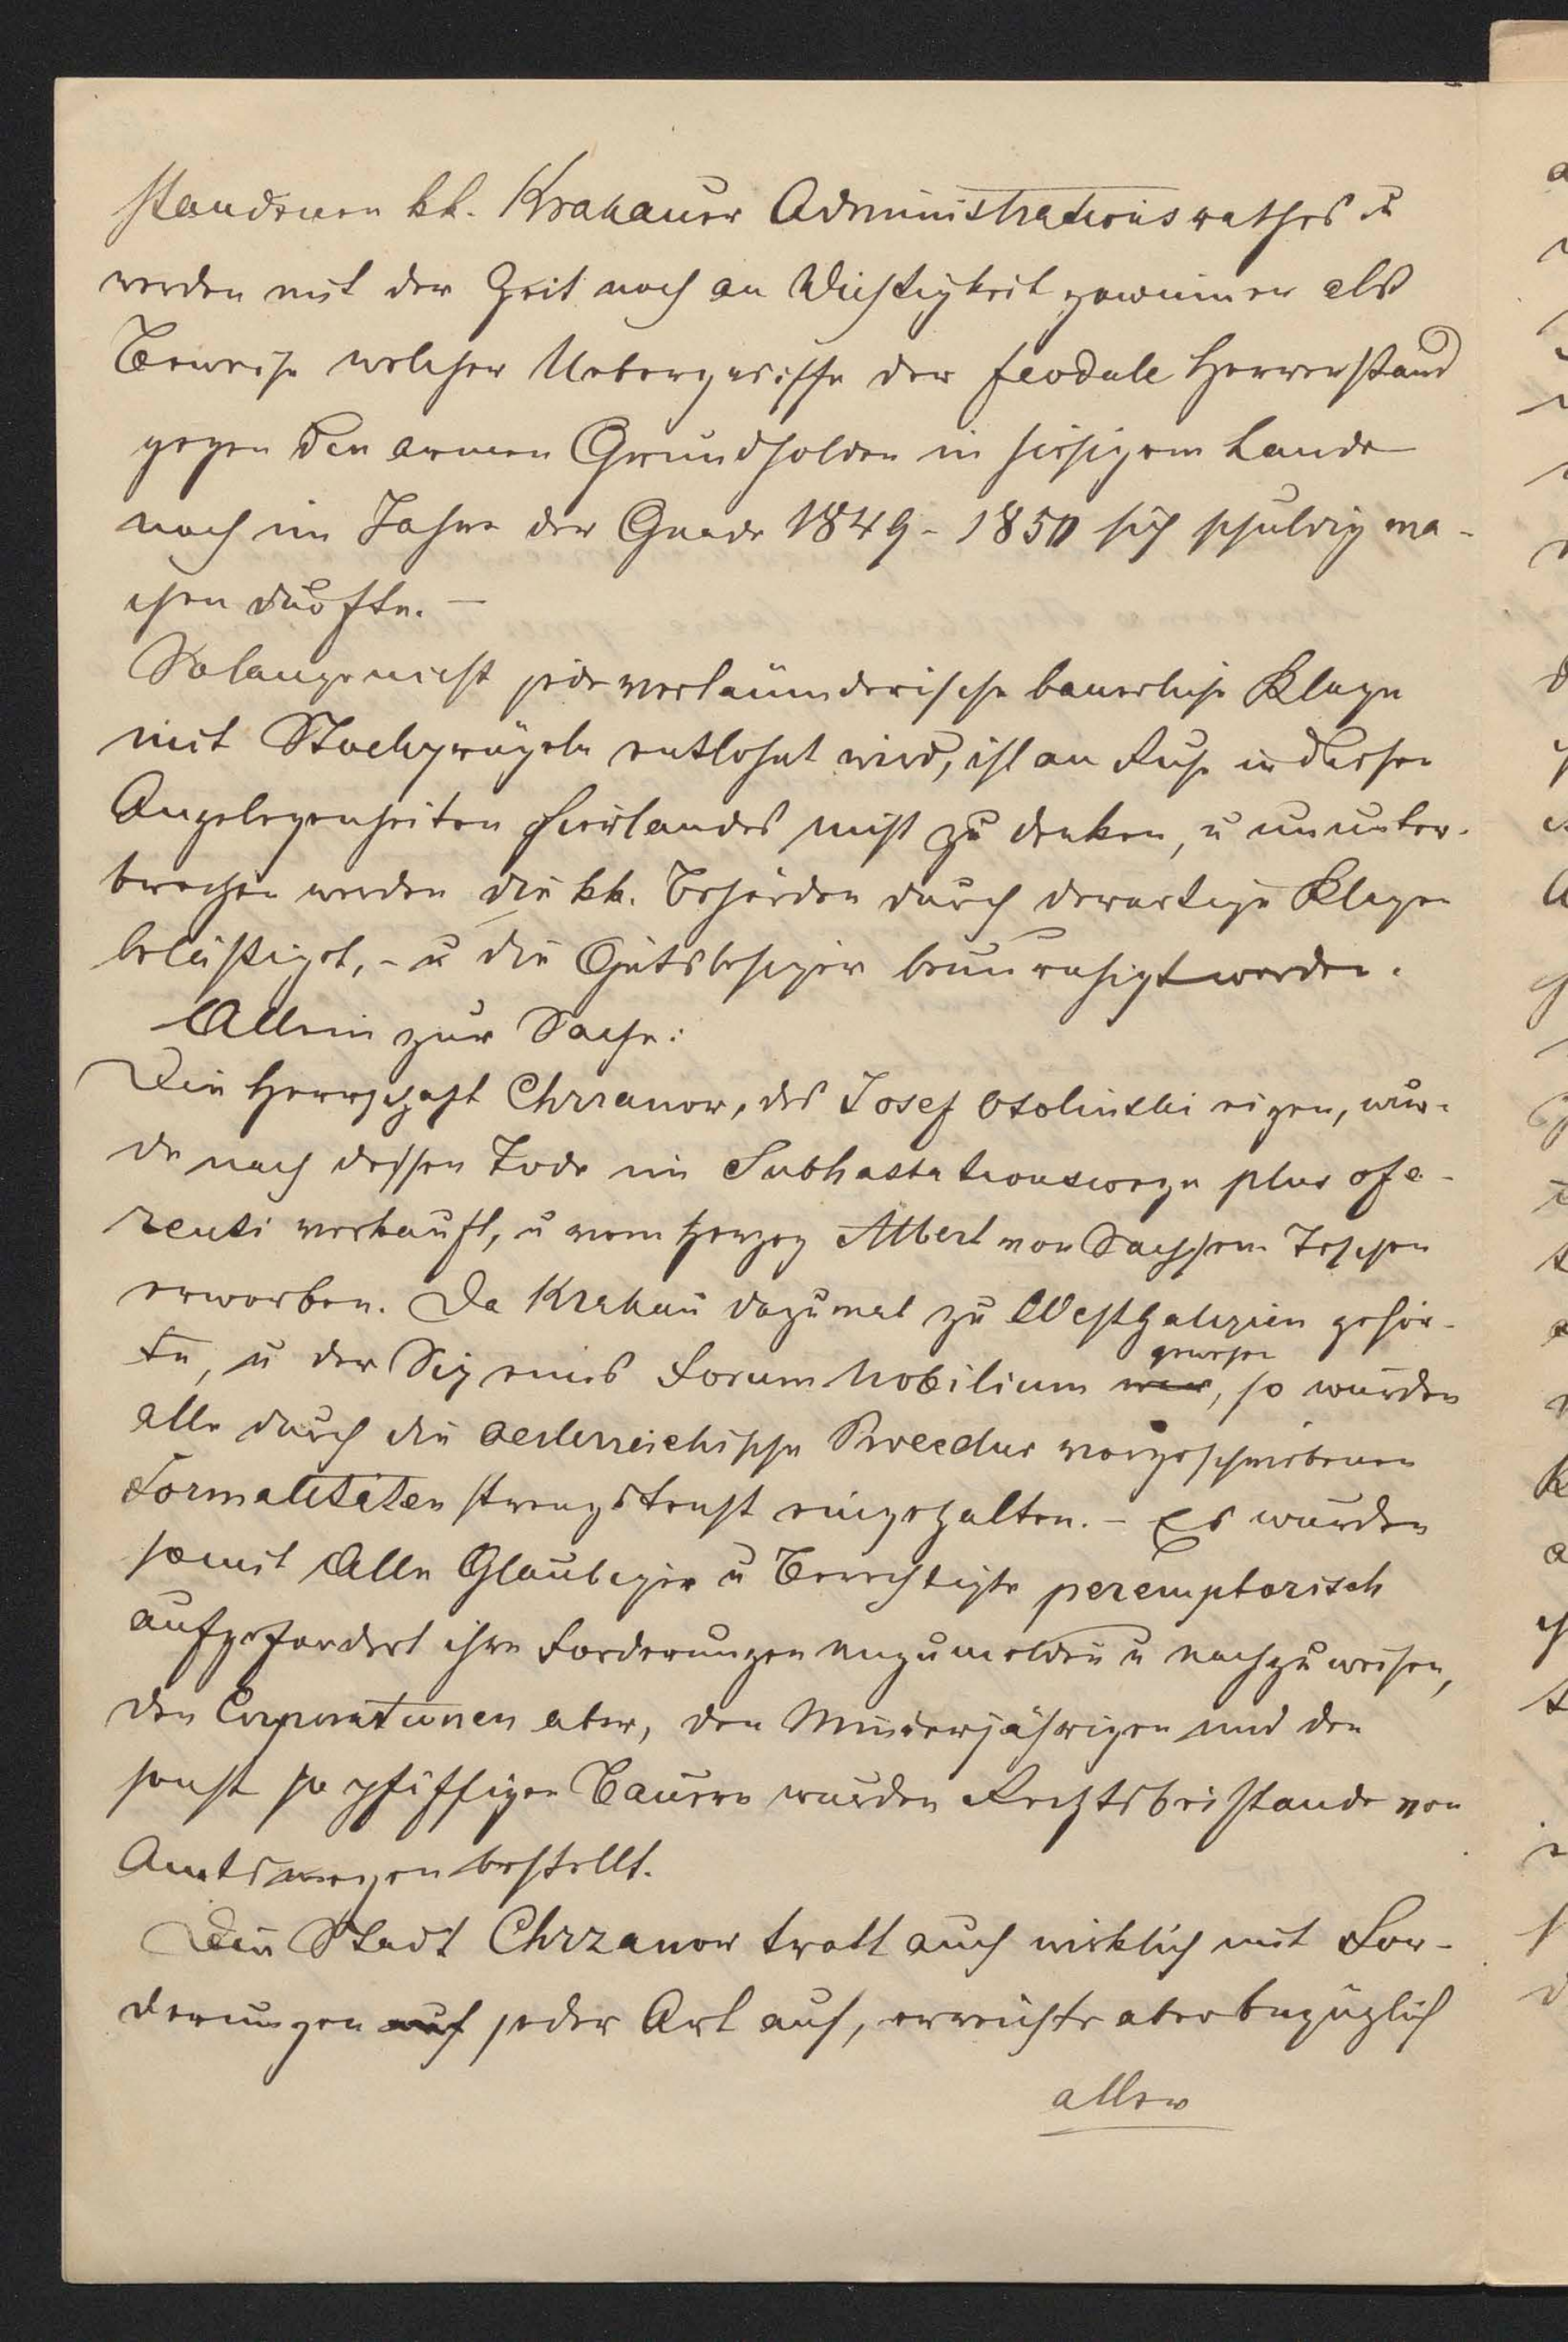 standenen kk. Krakauer Administrationsrathes u
werden mit der Zeit noch an Wichtigkeit gewinnen als
Beweise welcher Uebergriffe der feodale Herrenstand
gegen den armen Grundholden in hiesigem Lande
noch im Jahre der Gnade 1849 - 1850 sich schuldig ma-
chen durfte. —
Solange nicht jede verläumderische bauerliche Klage
mit Stockprügeln entlohnt wird, ist an Ruhe in diesen
Angelegenheiten hierlandes nicht zu denken, u ununter-
brochen werden die kk. Behörden durch derartige Klagen
belästiget, - u die Gutsbesitzer beunruhigt werden.
Allein zur Sache:
Die Herrschaft Chrzanow, des Josef Ossolinski eigen, wur-
de nach dessen Tode im Subhastationswege plus ofe-
renti verkauft, u vom Herzog Albert von Sachsen Teschen
erworben. Da Krakau dazumal zu Westgalizien gehör-
te, u der Sitz eines Forum Nobilium war, so wurden
gewesen
alle durch die oesterreichische Procedur vorgeschriebenen
Formalitäten strengstens eingehalten. - Es wurden
somit Alle Glaubiger u Berechtigte peremptorisch
aufgefordert ihre Forderungen anzumelden u nachzuweisen,
den Corporationen aber, den Minderjährigen und den
sonst so pfiffigen Bauern wurden Rechtsbeistande von
Amtswegen bestellt.
Die Stadt Chrzanow tratt auch wirklich mit For-
derungen auf jeder Art auf, erreichte aber bezüglich
aller